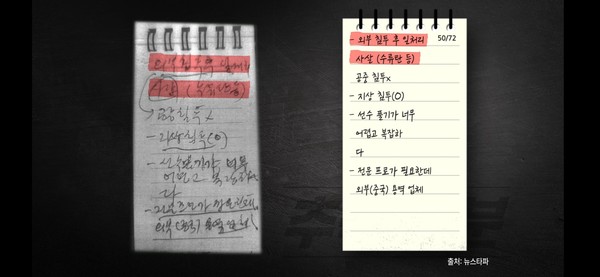 외부 침투 후 일처리
사살 (수류탄 등)
공중 침투x
- 지상 침투(O)
- 선수
어렵고
다
외부 (중국) 용역 업체
- 외부 침투 후 일처리 50/72
사살 (수류탄 등)
공중 침투x
- 지상 침투(O)
- 선수 풀기가 너무
어렵고 복잡하
다
- 전문 프로가 필요한데
외부(중국) 용역 업체
출처: 뉴스타파